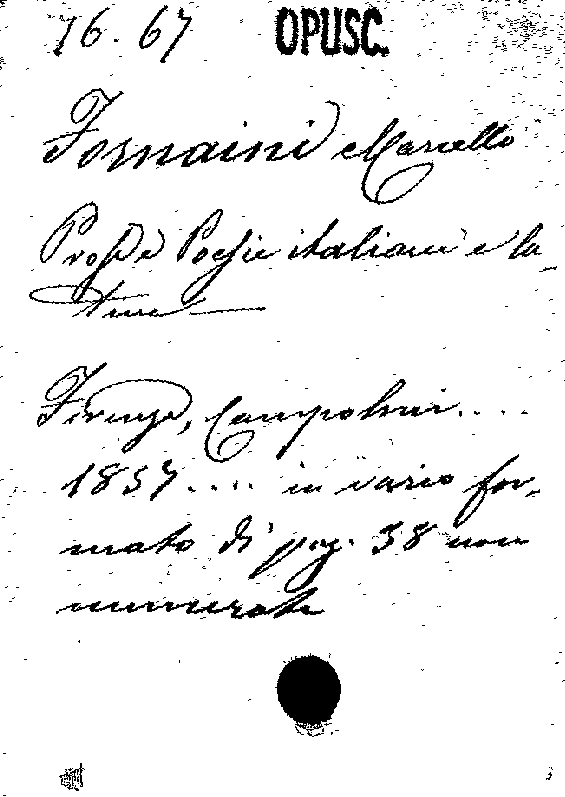 16.67 OPUSC.
Fornaini Marcello
Prose e Poesie italiane e la-
tine
Firenze, Campolmi....
1857.... in vario for-
mato di pag. 38 non
numerate